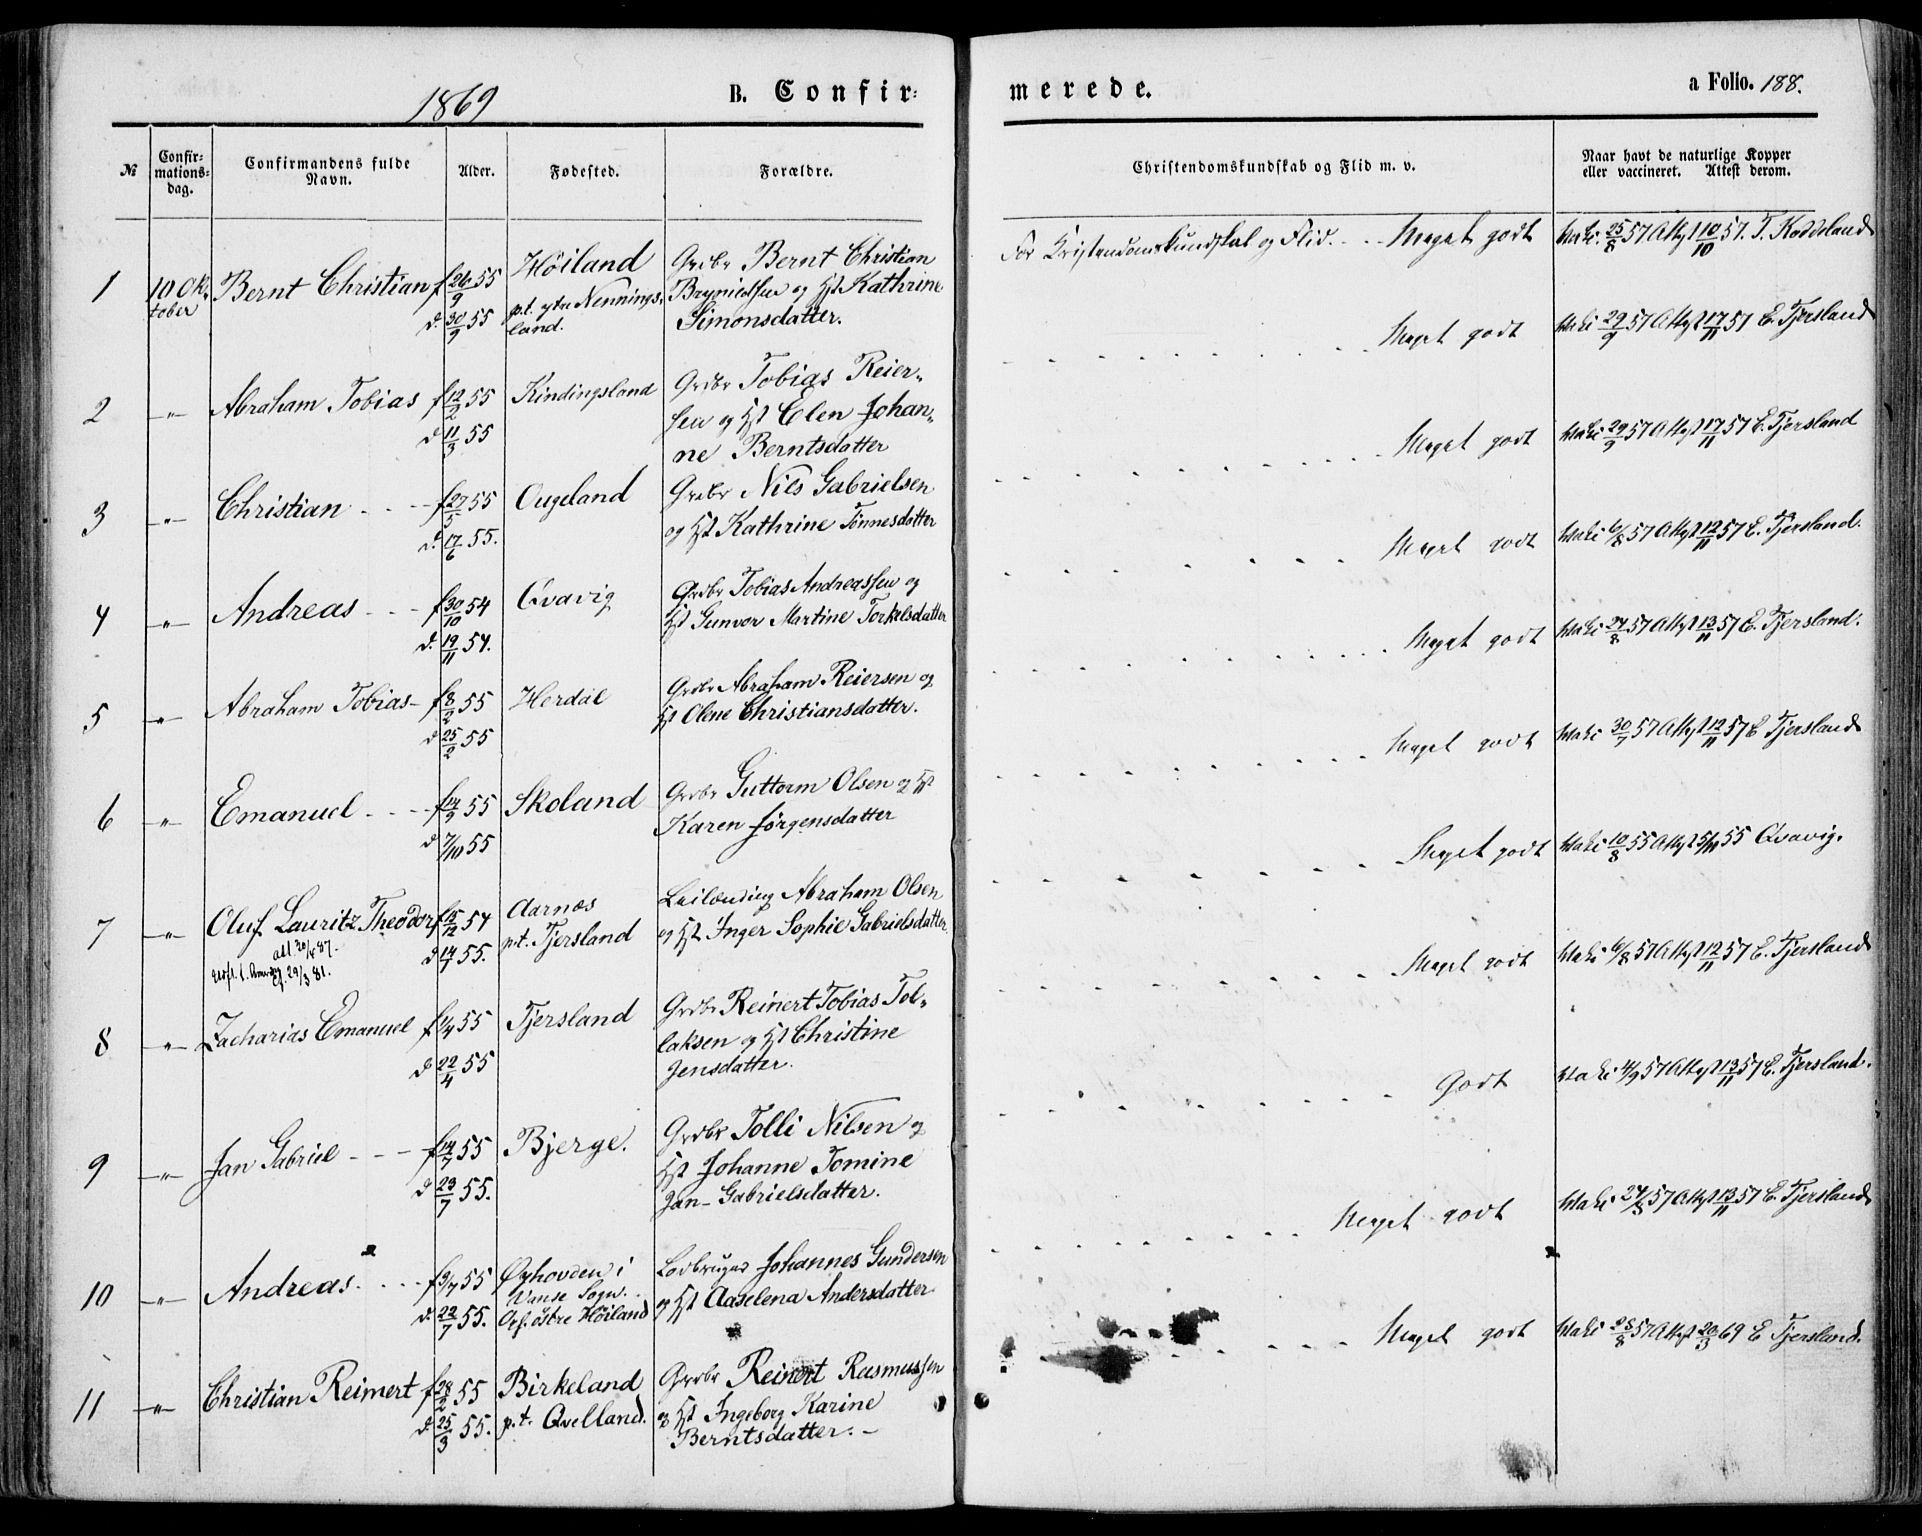 1869
B. Confir-
merede.
a Folio. 188.
№
Confir-
mations-
dag.
Confirmandens fulde
Navn.
Alder.
Fødested.
Forældre.
Christendomskundskab og Flid m. v.
Naar havt de naturlige Kopper
eller vaccineret. Attest derom.
1
10 Ok-
tober
Bernt Christian
f 26/9 55
d. 30/9 55
Höiland
p.t. ytre Nennings-
land.
Grdbr Bernt Christian
Brynildsen og Hst Kathrine
Simonsdatter.
For Kristendomskundskab og Flid. - - Meget godt
Vaki. 25/8 57 Attest 10/10 57. T. Koddeland
2
-"-
Abraham Tobias
f 12/2 55
d 11/3 55
Kindingsland
Grdbr Tobias Reier-
sen og Hst Elen Johan-
ne Berntsdatter
Meget godt
Vaki 29/9 57 Attest 17/11 57 E. Tjersland
3
-"-
Christian
f 27/5 55
d. 17/6 55.
Ougeland
Grdbr Nils Gabrielsen
og Hst Kathrine Tönnesdatter
Meget godt
Vaki 29/9 57 Attest 17/11 57 E. Tjersland
4
-"-
Andreas
f 30/10 54
d. 19/11 54.
Qvavig
Grdbr Tobias Andreassen og
Hst Gunvor Martine Torkelsdatter
Meget godt
Vaki 6/8 57 Attest 12/11 57 E. Tjersland.
5
-"-
Abraham Tobias
f 8/2 55
d 25/2 55
Herdal
Grdbr Abraham Reiersen og
Hst Olene Christiansdatter.
Meget godt
Vaki 24/8 57 Attest 13/11 57 E. Tjersland.
6
-"-
Emanuel
f 14/9 55
d 7/10 55
Skoland
Grdbr Guttorm Olsen og Hst
Karen Jörgensdatter
Meget godt
Vaki 30/7 57 Attest 12/11 57 E Tjersland
7
-"-
Oluf Lauritz Theodor
f 15/12 54
d 14/1 55.
Aarnæs
p.t. Tjersland
Leilænding Abraham Olsen
og Hst Inger Sophie Gabrielsdatter
Meget godt
Vaki 10/8 55 Attest 5/11 55 Qvavig.
8
-"-
Zacharias Emanuel
f 1/4 55
d 22/4 55
Tjersland
Grdbr Reinert Tobias Tol-
laksen og Hst Christine
Jensdatter.
Meget godt
Vaki 6/8 57 Attest 12/11 57 E. Tjersland
9
-"-
Jan Gabriel
f 14/7 55
d 23/7 55.
Bjerge.
Grdbr Tolli Nilsen og
Hst Johanne Tomine
Jan-Gabrielsdatter.
Godt
Vaki 4/9 57 Attest 13/11 57 E. Tjersland.
10
-"-
Andreas
f 3/7 55
d. 22/7 55.
Öyhovden i
Vanse Sogn.
Opf. östre Höiland
Lodbruger Johannes Gundersen
og Hst Aaselena Andersdatter
Meget godt
Vaki 24/8 57 Attest 13/11 57 E. Tjersland
11
-"-
Christian Reinert
f 28/2 55
d. 25/3 55.
Birkeland
p.t. Qvelland.
Grdbr Reinert Rasmussen
og Hst Ingeborg Karine
Berntsdatter.
Meget godt
Vaki 28/8 57 Attest 20/3 69 E Tjersland.